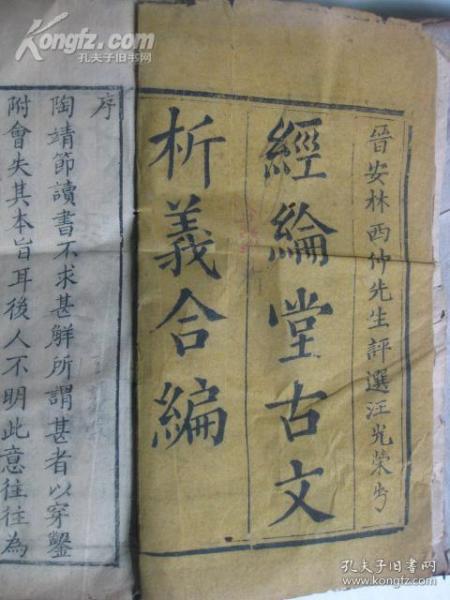 晉安林西仲先生評選汪光榮
經綸堂古文
析義合編
序
陶靖節讀書不求甚解所謂甚者以穿鑿
附會失其本旨耳後人不明此意往往為
Kongfz.com
孔夫子旧书网
孔夫子旧书网
www.kongfz.com